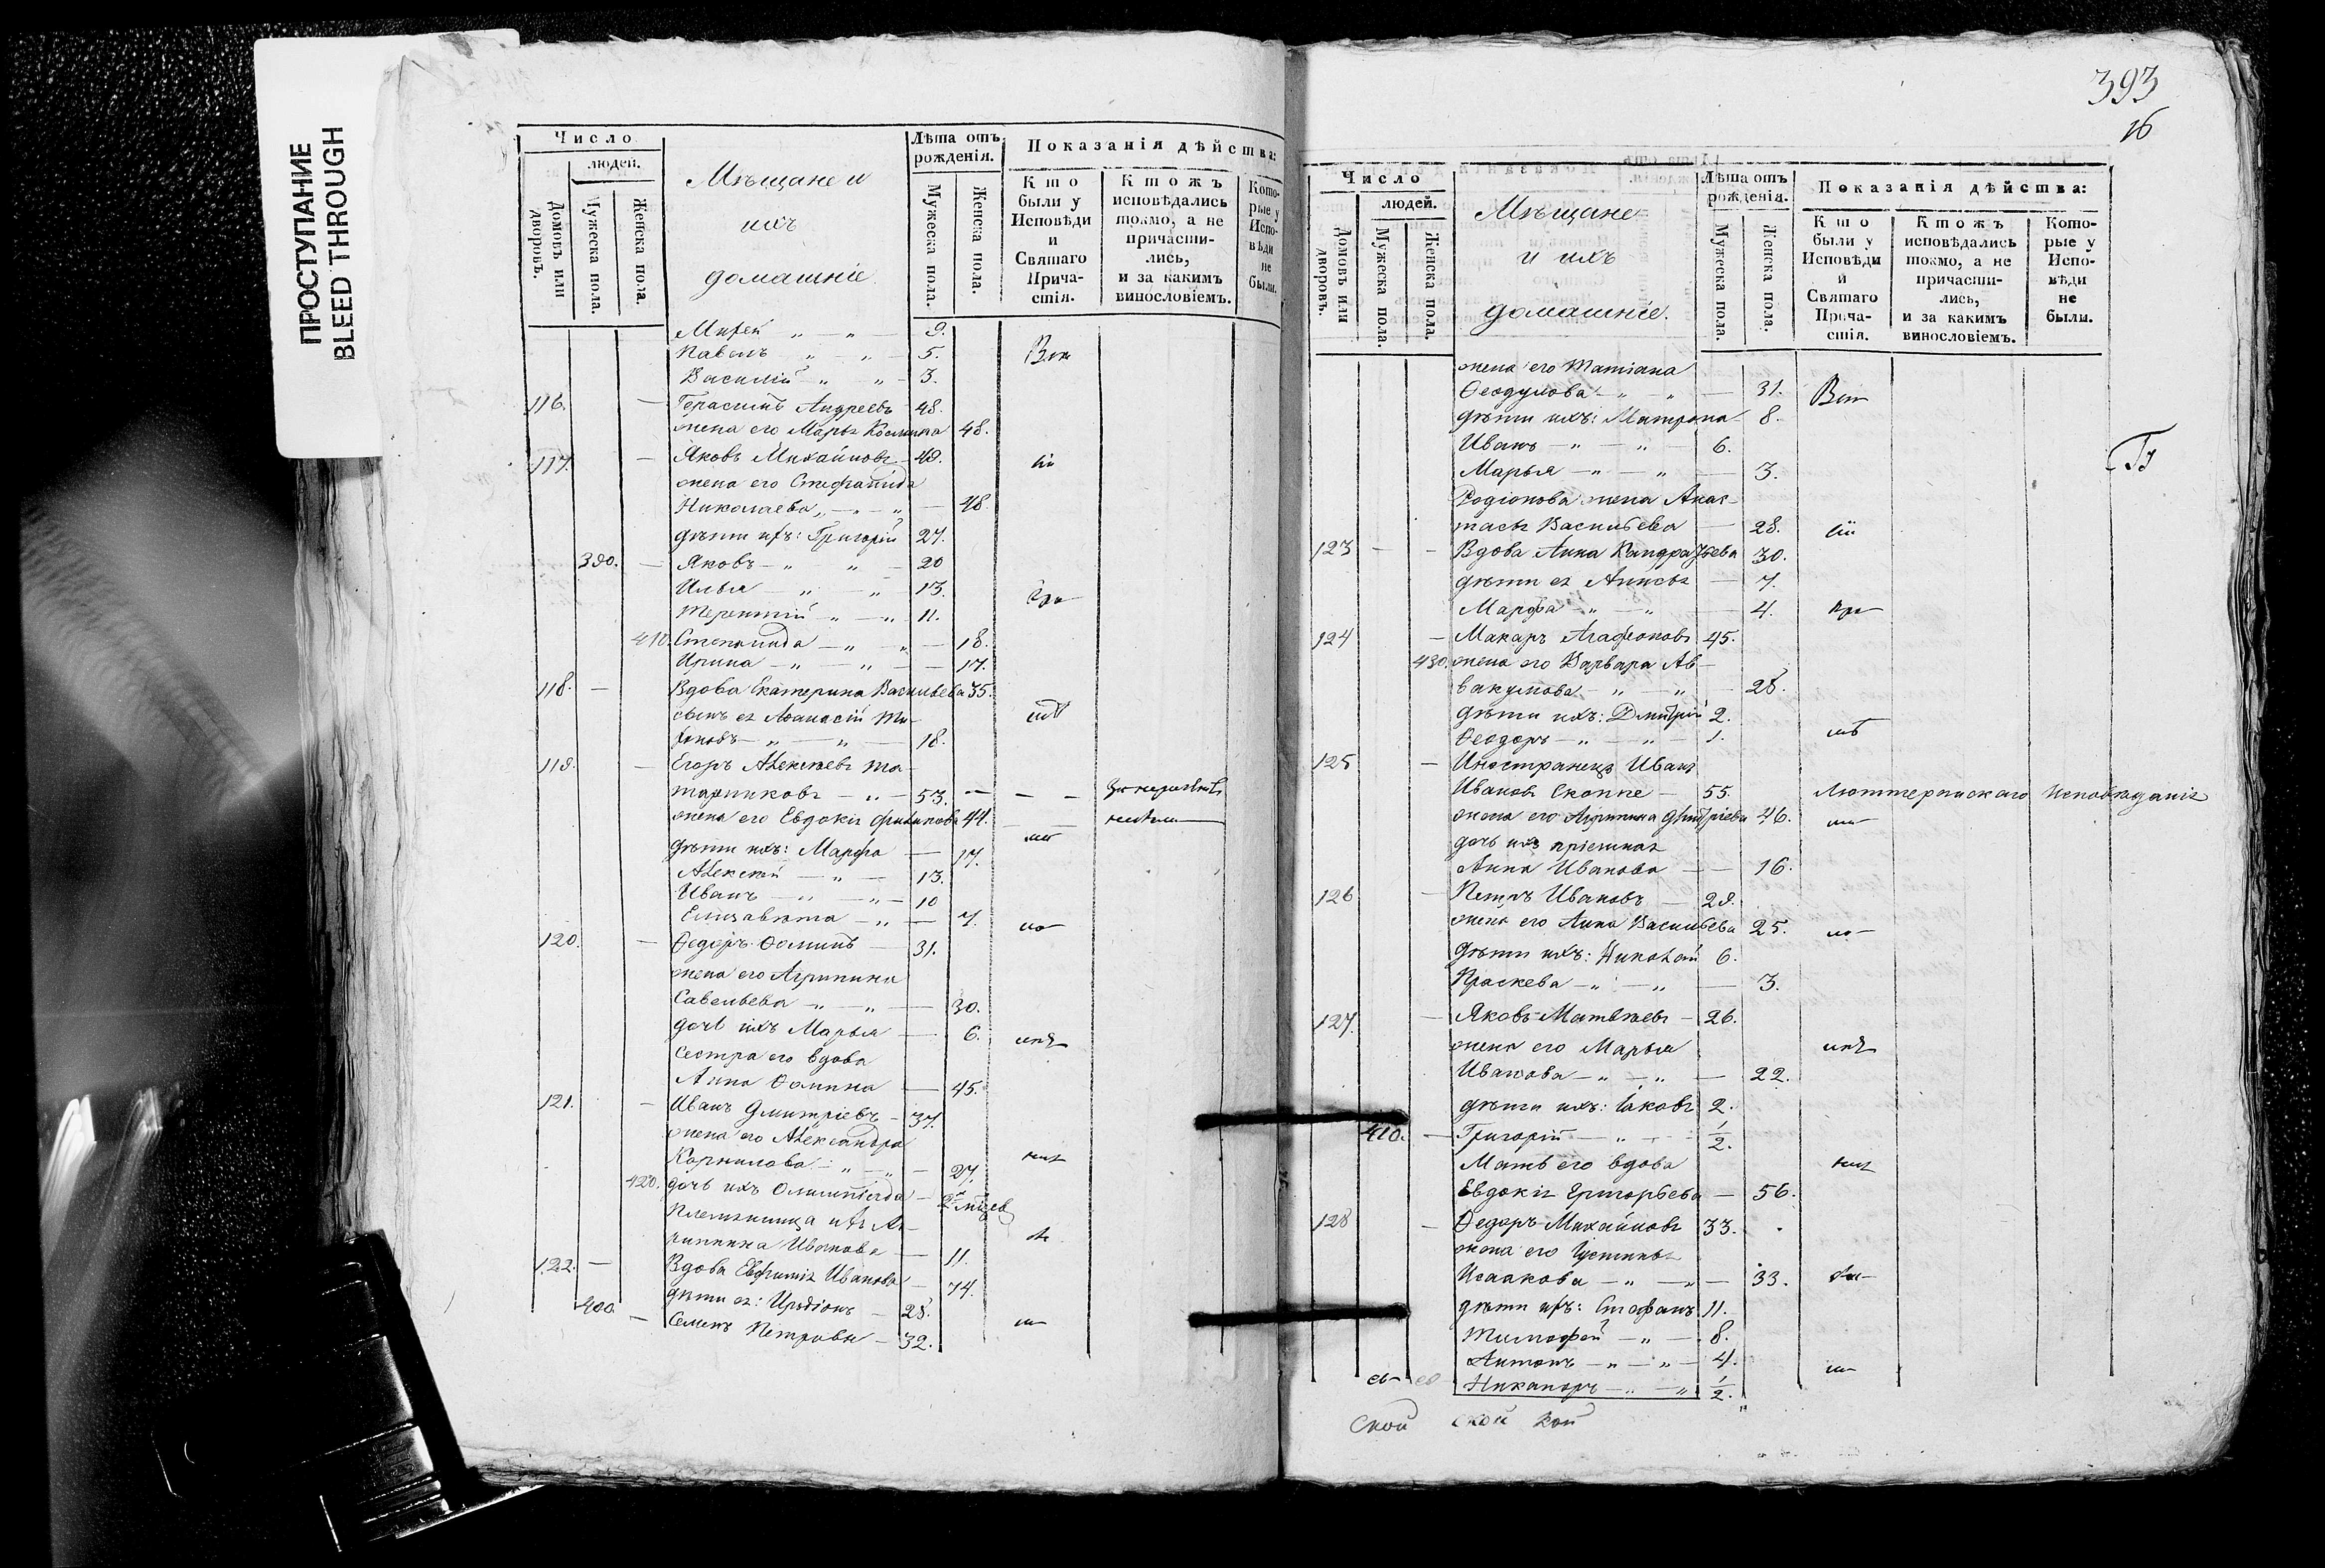 ПРОСТУПАНИЕ
BLEED THROUGH
Число
людей.
Домовъ или дворовъ.
Мужеска пола.
Женска пола.
Мѣщане и
ихъ
домашніе.
Лѣта отъ рожденія.
Мужеска пола.
Женска пола.
Показанія дѣйства:
Кто были у Исповѣди и Святаго Причастія.
Ктожъ исповѣдались токмо, а не причастились, и за какимъ винословіемъ.
Которые у Исповѣди не были.
Павелъ 5.
Василій 3.
116. Герасимъ Андреевъ 48.
жена его Марья Космина 48.
117. Яковъ Михайловъ 49.
жена его Стефанида
Николаева 48.
дѣти ихъ: Григорій 27.
390. Яковъ 20
Илья 13.
Терентій 11.
410. Степанида 18.
Ирина 17.
118. Вдова Екатерина Васильева 35.
сынъ ея Афанасій Ти-
18.
119. Егоръ Алексѣевъ
53.
жена его Евдокія 44.
дѣти ихъ: Марфа 17.
Алексѣй 13.
Иванъ 10
Елизавета 7.
120. Ѳедоръ Ѳоминъ 31.
жена его Агрипина
Савельева 30.
дочь ихъ Марья 6.
сестра его вдова
Анна Ѳомина 45.
121. Иванъ Дмитріевъ 37.
жена его Александра
Корнилова 27.
420. дочь ихъ Олимпіада 2
Племянница ихъ Аг-
рипина Иванова 11.
122. Вдова Евфимія Иванова 74.
дѣти ея: 28.
400. Семенъ Петровы 32.
393
16
Число
людей.
Домовъ или дворовъ.
Мужеска пола.
Женска пола.
Мѣщане
и ихъ
домашніе.
Лѣта отъ рожденія.
Мужеска пола.
Женска пола.
Показанія дѣйства:
Кто были у Исповѣди и Святаго Причастія.
Ктожъ исповѣдались токмо, а не причастились, и за какимъ винословіемъ.
Которые у Исповѣди не были.
жена его Татіана
Ѳеодулова 31.
дѣти ихъ: Матрона 8.
Иванъ 6.
Марья 3.
Родіонова жена Анас-
тасья Васильева 28.
123 Вдова Анна 30.
дѣти ея 7.
Марфа 4.
124 Макаръ Агафоновъ 45.
430. жена его Варвара Ав-
вакумова 28.
дѣти ихъ: Дмитрій 2.
Ѳеодоръ 1.
125 Иностранецъ Иванъ
Ивановъ Скопке 55. Люттеранскаго Исповѣданія
жена его Агрипина Дмитріева 46.
дочь ихъ
Анна Иванова 16.
126 Петръ Ивановъ 29.
жена его Анна Васильева 25.
дѣти ихъ: Николай 6.
Праскева 3.
127 Яковъ Матвѣевъ 26.
жена его Марья
Иванова 22.
дѣти ихъ: Іаковъ 2.
410. Григорій 1/2.
Мать его вдова
Евдокія Григорьева 56.
128 Ѳедоръ Михайловъ 33.
жена его Устинья
Исаакова 33.
дѣти ихъ: Стефанъ 11.
Тимофей 8.
Антонъ 4.
Никаноръ 1/2.
ской ской кой